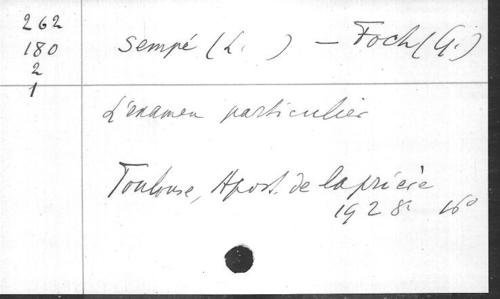 262
180
2
1
Sempé (L. ) — Foch (G.)
L'examen particulier
Toulouse, Apost. de la prière
1928. 16°